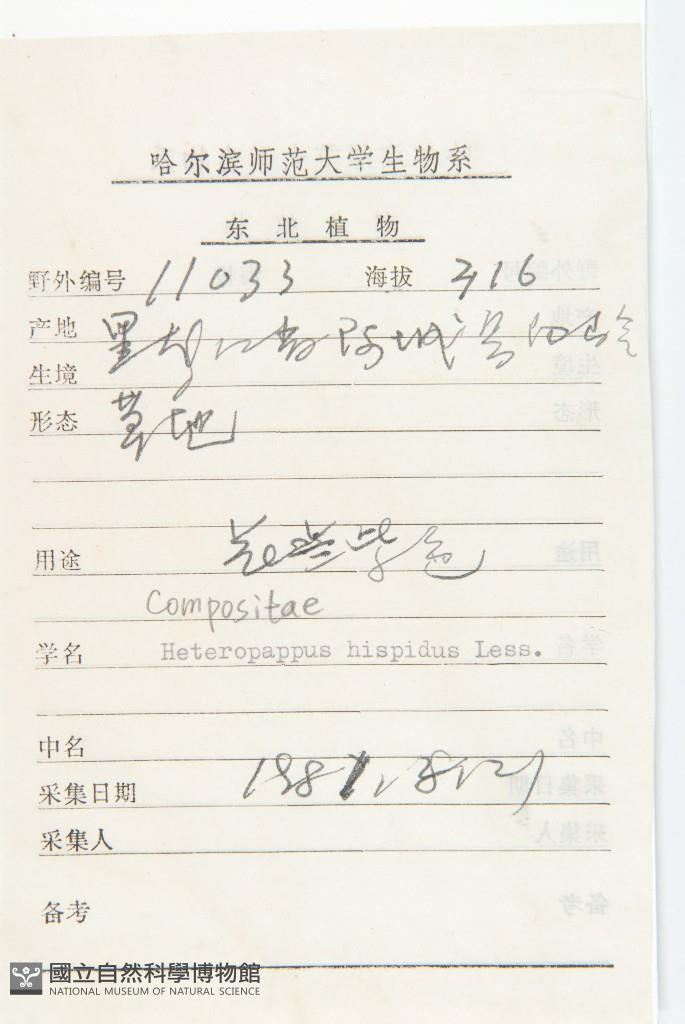 哈尔滨师范大学生物系
东北植物
野外编号 11033 海拔 716
产地 黑龙江省阿城县
生境
形态 草地
用途 花兰紫色
Compositae
学名 Heteropappus hispidus Less.
中名
采集日期
采集人
备考
國立自然科學博物館
NATIONAL MUSEUM OF NATURAL SCIENCE